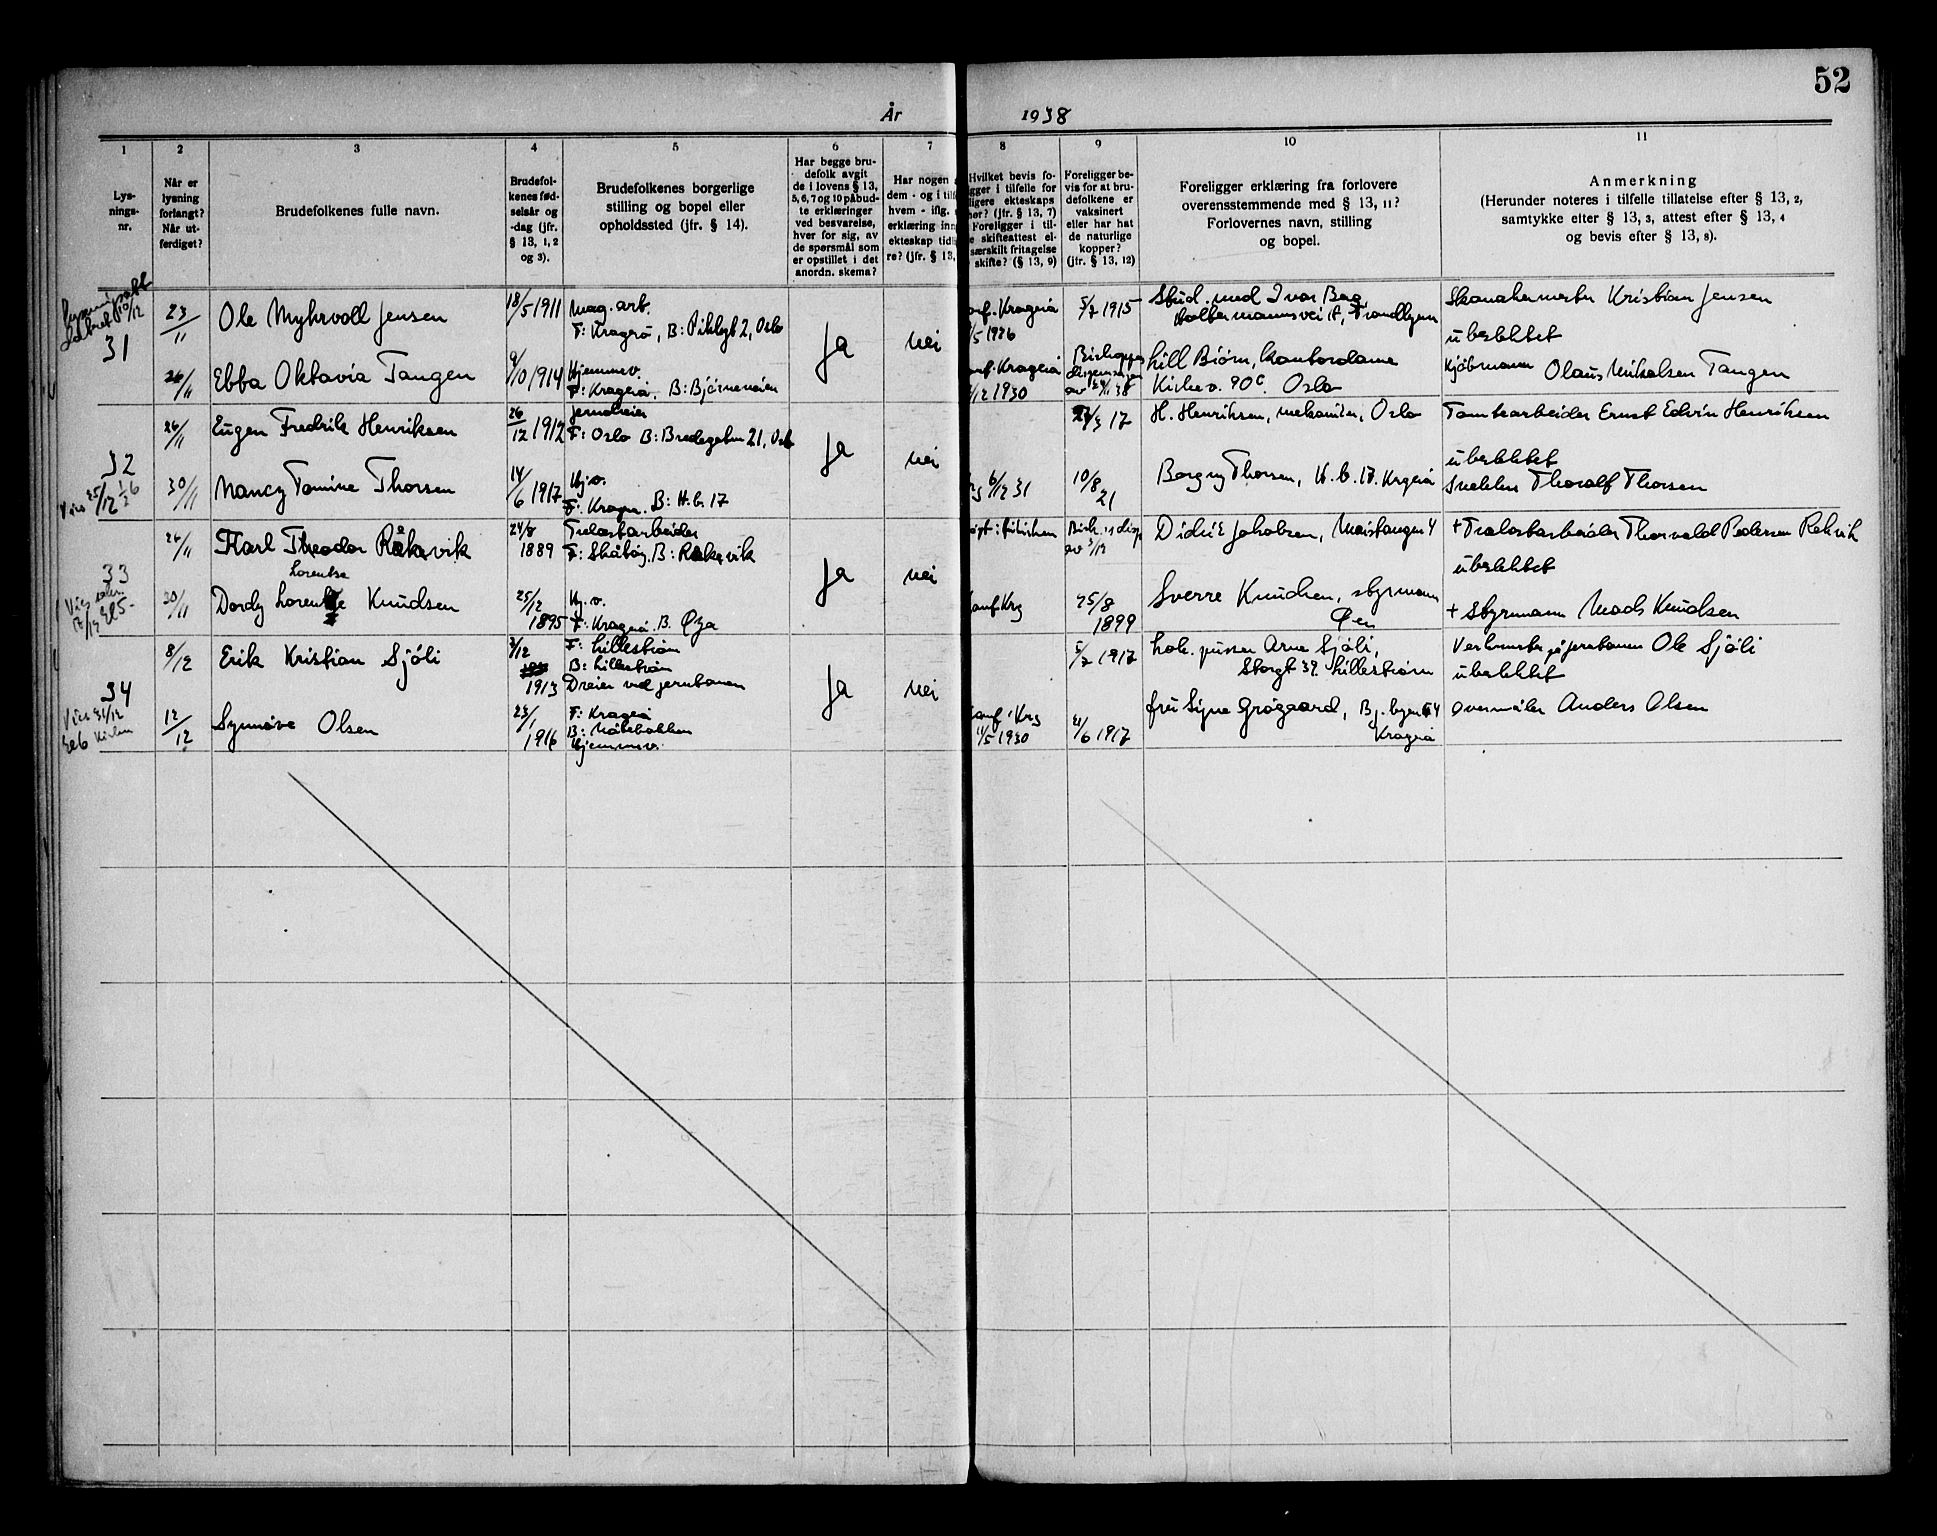 52
År 1938
1 2 3 4 5 6 7 8 9 10 11
Lys-
nings-
nr.
Når er
lysning
forlangt?
Når ut-
ferdiget?
Brudefolkenes fulle navn.
Brudefol-
kenes fød-
selsår og
-dag (jfr.
§ 13, 1, 2
og 3).
Brudefolkenes borgerlige
stilling og bopel eller
opholdssted (jfr. § 14).
Har begge bru-
defolk avgit
de i lovens § 13,
5, 6, 7 og 10 påbud-
te erklæringer
ved besvarelse,
hver for sig, av
de spørsmål som
er opstillet i det
anordn. skema?
Har nogen
dem - og i tilf
hvem - iflg.
erklæring inn
ekteskap tidl
re? (jfr. § 13,
Hvilket bevis fo-
gger i tilfelle for
ligere ekteskaps
hør? (jfr. § 13, 7)
Foreligger i til-
e skifteattest el-
særskilt fritagelse
skifte? (§ 13, 9)
Foreligger be-
vis for at bru-
defolkene er
vaksinert
eller har hat
de naturlige
kopper?
(jfr. § 13, 12)
Foreligger erklæring fra forlovere
overensstemmende med § 13, 11?
Forlovernes navn, stilling
og bopel.
Anmerkning
(Herunder noteres i tilfelle tillatelse efter § 13, 2,
samtykke efter § 13, 3, attest efter § 13, 4
og bevis efter § 13, 8).
31
23/11 Ole Myhrvoll Jensen 18/5 1911 Mag. arb.
F: Kragerø, B: Pilelgt 2, Oslo
Ja nei
conf. Kragerø
/5 1926
5/7 1915
Stud. med Ivar Berg,
Kristian Jensen
ubeslektet
26/11 Ebba Oktavia Tangen 9/10 1914 Hjemmev.
F: Kragerø. B: Bjørneveien
conf. Kragerø
/12 1930
Lill Biørn, kontordame
Kirkev. 90c. Oslo
Kjøbmann Olaus Mikalsen Tangen
32
26/11 Eugen Fredrik Henriksen 26/12 1912 Jerndreier
F: Oslo B: Bredegaten 21, Oslo
Ja nei
27/3 17
H. Henriksen, mekaniker, Oslo
Ernst Edvin Henriksen
ubeslektet
30/11 Nancy Tomine Thorsen 14/6 1917 Hj.v.
F: Kragerø. B: H.b. 17
6/12 31
10/8 21
Borgny Thorsen, H.b. 17. Krgerø
Snekker Thoralf Thorsen
33
26/11 Karl Theodor Råkevik 24/8 1889
Treslastarbeider
F: Skåtøy. B: Rekevik
Ja nei
Didrik Jakobsen,
+ Trelastarbeider Thorvald Pedersen Rekvik
ubeslektet
Lorentse
30/11 Dordy Lorentze Knudsen 25/12 1895
Hj.v.
F: Kragerø. B. Øya
conf Krg
25/8 1899
Sverre Knudsen, styrmann
Øen
+ Styrmann Mads Knudsen
34
8/12 Erik Kristian Sjøli 3/12 1913
F: Lillestrøm
B: Lillestrøm
Dreier ved jernbanen
Ja nei
5/7 1917
Lok. pusser Arne Sjøli,
Storgt 39. Lillestrøm
Verkmester på jernbanen Ole Sjøli
ubeslektet
12/12 Synnøve Olsen 23/1 1916
F: Kragerø
B: Måkebakken
Hjemmev.
conf. Krg
11/5 1930
21/6 1917
fru Signe Grøgaard, Bj. byen 64
Kragerø
Overmåler Anders Olsen